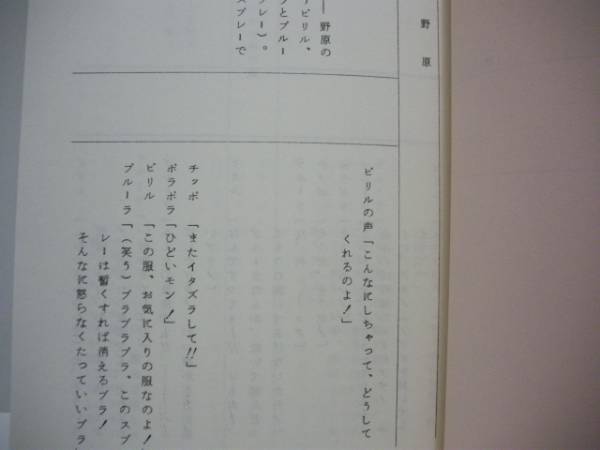 野原
――野原の
ビリル、
ラとブルー
プレー)。
スプレーで
ビリルの声「こんなにしちゃって、どうして
くれるのよ!」
チッポ「またイタズラして!!」
ポラポラ「ひどいモン!」
ビリル「この服、お気に入りの服なのよ!
ブルーラ「(笑う)ブラブラブラ。このスプ
レーは暫くすれば消えるブラ!
そんなに怒らなくたっていいブラ